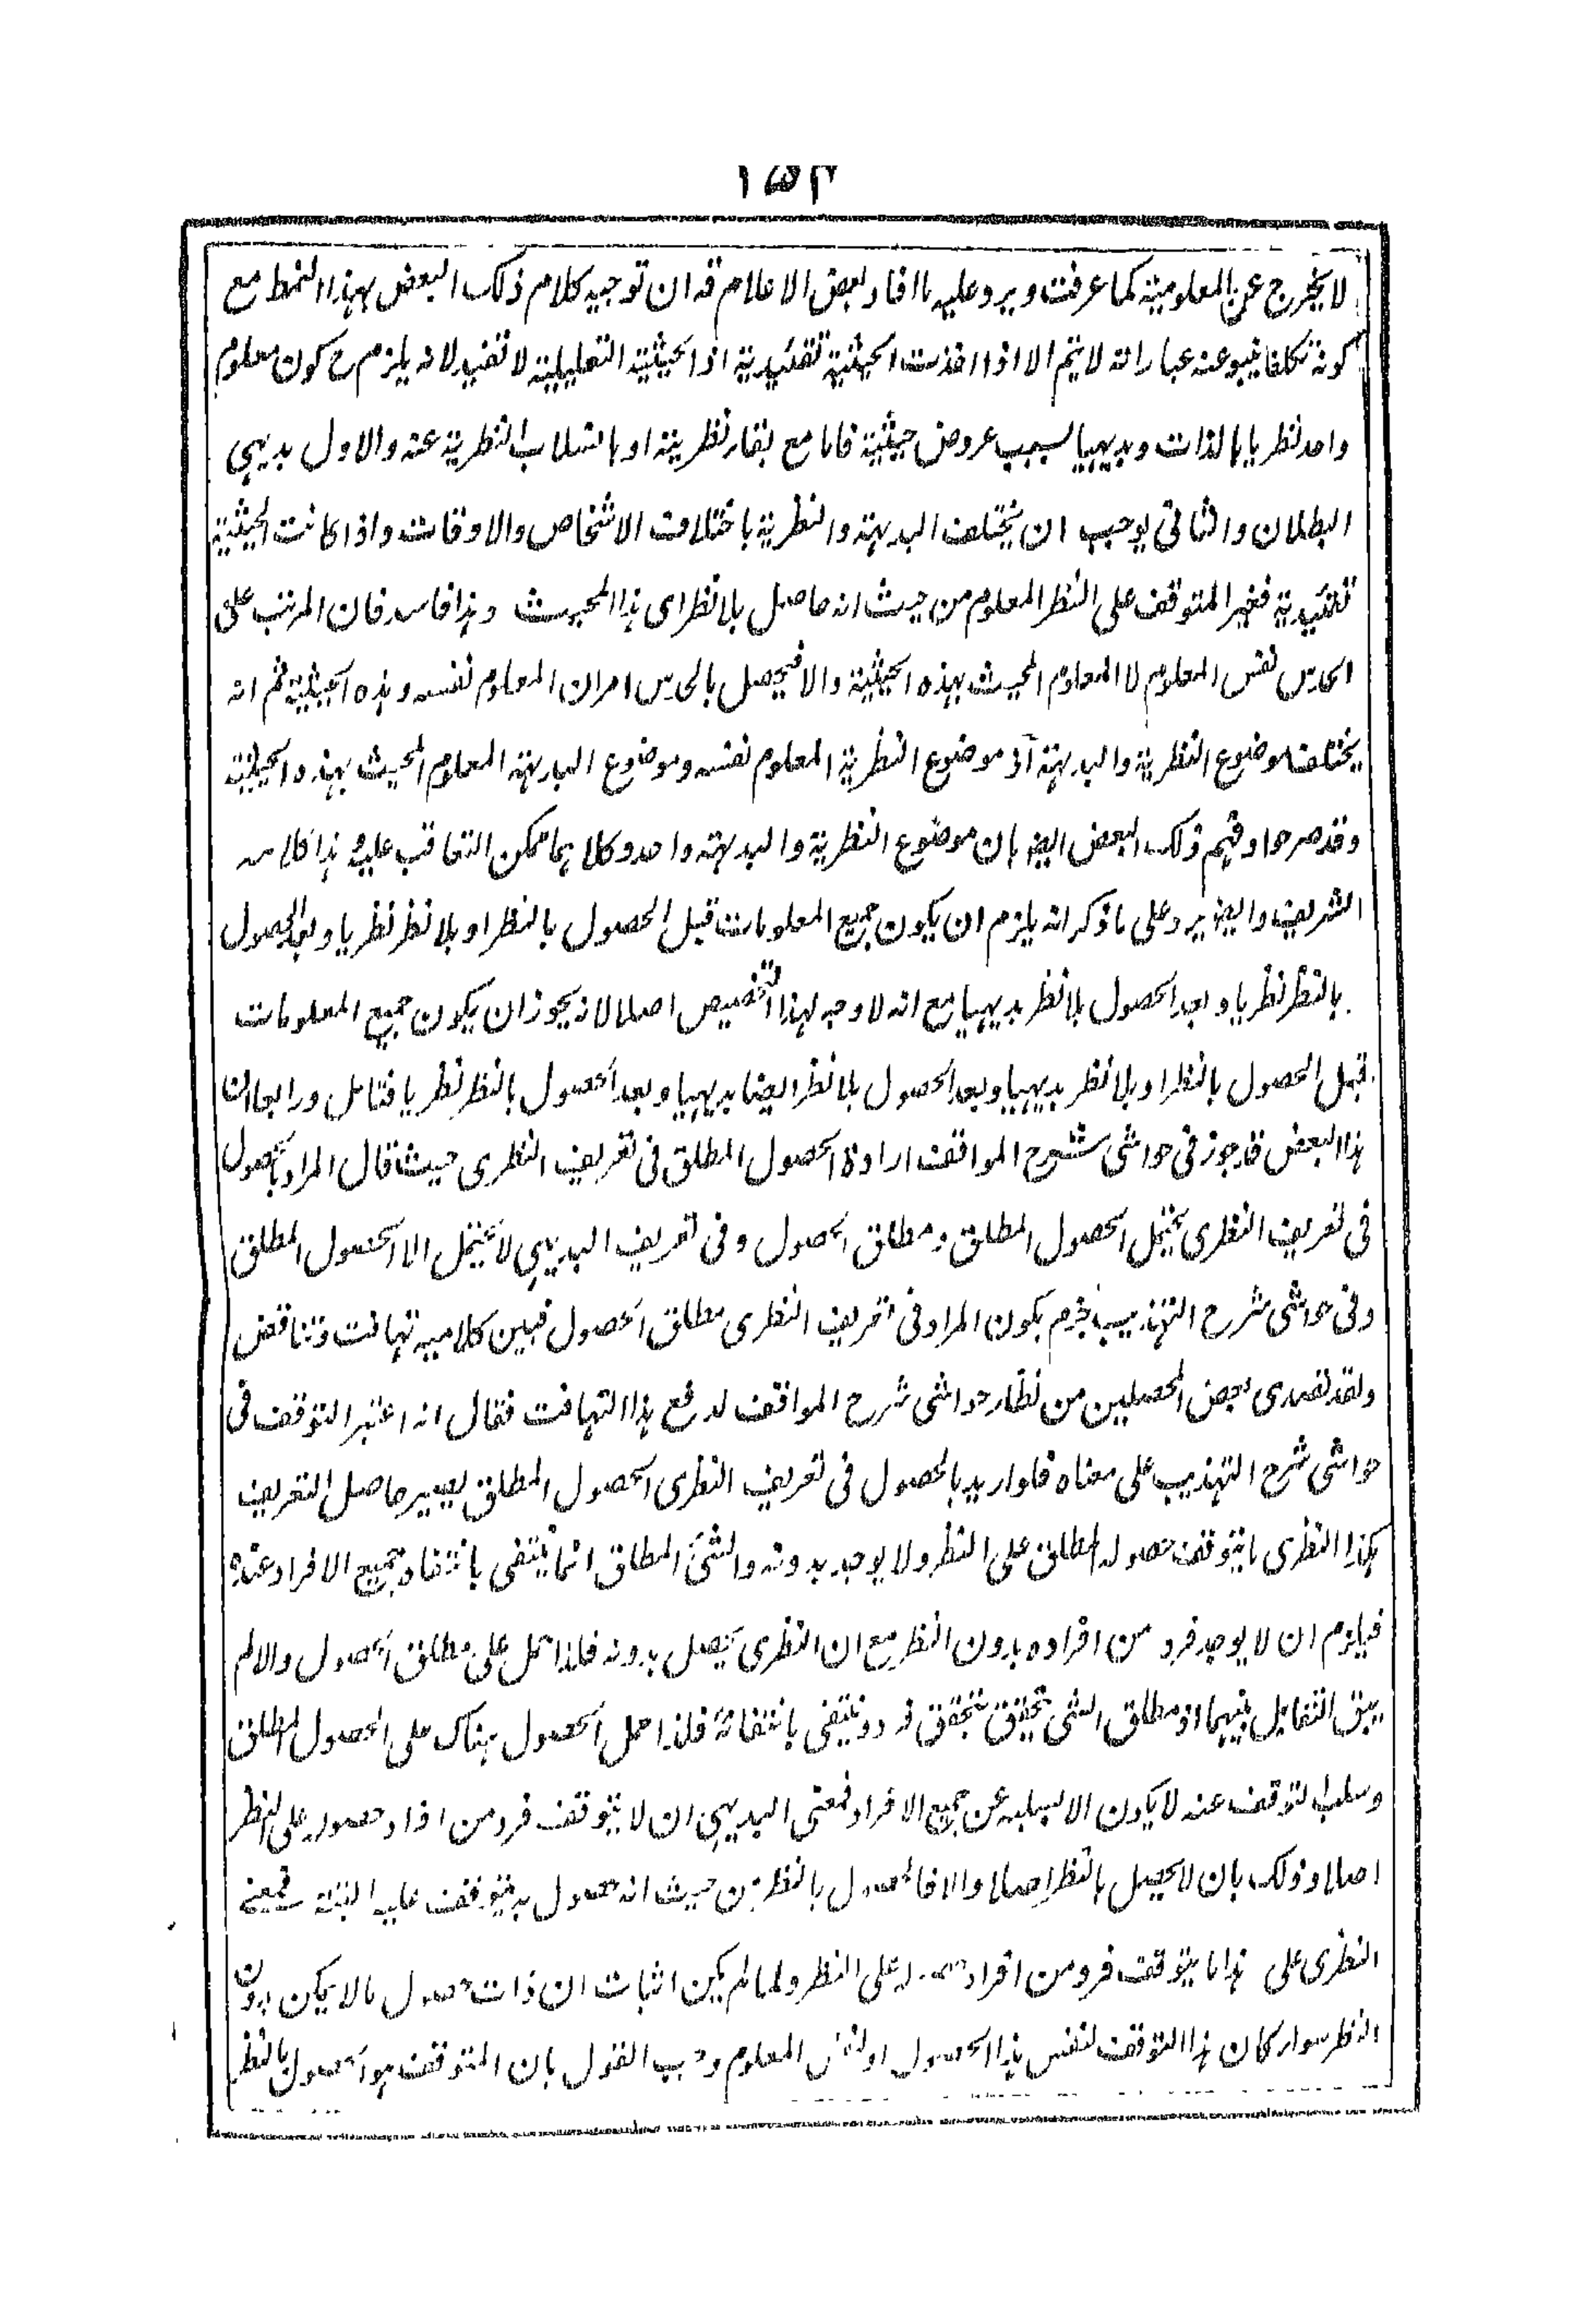 ١٥٢
لا يخرج عن المعلومية كما عرفت ويرد عليه ما افاد بعض الاعلام قد ان توجيه كلام ذلك البعض بهذا النمط مع
كونه تكلفا ينبو عنه عباراته لا يتم الا اذا اخذت الحيثية تقئيدية اذ الحيثية التعليلية لا تفيد لانه يلزم ح كون معلوم
واحد نظريا بالذات وبديهيا لسبب عروض حيثية فاما مع بقاء نظرية او بانسلاب النظرية عنه والاول بديهي
البطلان والثاني يوجب ان يختلف البديهة والنظرية باختلاف الاشخاص والاوقات واذا كانت الحيثية
تقئيدية فغير المتوقف على النظر المعلوم من حيث انه حاصل بلا نظر اى هذا المحيث وهذا فاسد فان المرتب على
الحدس نفس المعلوم لا المعلوم المحيث بهذه الحيثية والا فيحصل بالحدس امران المعلوم نفسه وهذه الحيثية ثم انه
يختلف موضوع النظرية والبديهة اذ موضوع النظرية المعلوم نفسه وموضوع البديهة المعلوم المحيث بهذه الحيثية
وقد صرحوا ومنهم ذلك البعض ايضا بان موضوع النظرية والبديهة واحد وكلاهما ممكن التعاقب عليه هذا كلامه
الشريف وايضا يرد على ما ذكر انه يلزم ان يكون جميع المعلومات قبل الحصول بالنظر او بلا نظر نظريا وبعد الحصول
بالنظر نظريا وبعد الحصول بلا نظر بديهيا مع انه لا وجه لهذا التخصيص اصلا لانه يجوز ان يكون جميع المعلومات
قبل الحصول بالنظر او بلا نظر بديهيا وبعد الحصول بلا نظر ايضا بديهيا وبعد الحصول بالنظر نظريا فتامل ورابعا ان
هذا البعض قد جوز في حواشى شرح المواقف ارادة الحصول المطلق في تعريف النظرى حيث قال المراد بالحصول
في تعريف النظرى يحتمل الحصول المطلق ومطلق الحصول وفي تعريف البديهي لا يحتمل الا الحصول المطلق
وفي حواشى شرح التهذيب جزم بكون المراد في تعريف النظرى مطلق الحصول فبين كلاميه تهافت وتناقض
ولقد تصدى بعض المحصلين من نظار حواشى شرح المواقف لدفع هذا التهافت فقال انه اعتبر التوقف في
حواشى شرح التهذيب على معناه فلو اريد بالحصول في تعريف النظرى الحصول المطلق يصير حاصل التعريف
هكذا النظرى ما يتوقف حصوله المطلق على النظر ولا يوجد بدونه والشئ المطلق انما ينتفى بانتفاء جميع الافراد عنده
فيلزم ان لا يوجد فرد من افراده بدون النظر مع ان النظرى يحصل بدونه فلذا حمل على مطلق الحصول والا لم
يبق التقابل بينهما اذ مطلق الشئ يتحقق بتحقق فرد وينتفى بانتفائه فلذا حمل الحصول هناك على الحصول المطلق
وسلب التوقف عنه لا يكون الا بسلبه عن جميع الافراد فمعنى البديهي ان لا يتوقف فرد من افراد حصوله على النظر
اصلا وذلك بان لا يحصل بالنظر اصلا والا فالحصول بالنظر من حيث انه حصول به يتوقف عليه البتة فمعنى
النظرى على هذا ما يتوقف فرد من افراد حصوله على النظر ولما لم يكن اثبات ان ذات حصول ما لا يمكن بدون
النظر سواء كان هذا التوقف لنفس هذا الحصول او لنفس المعلوم وجب القول بان المتوقف هو الحصول بالنظر